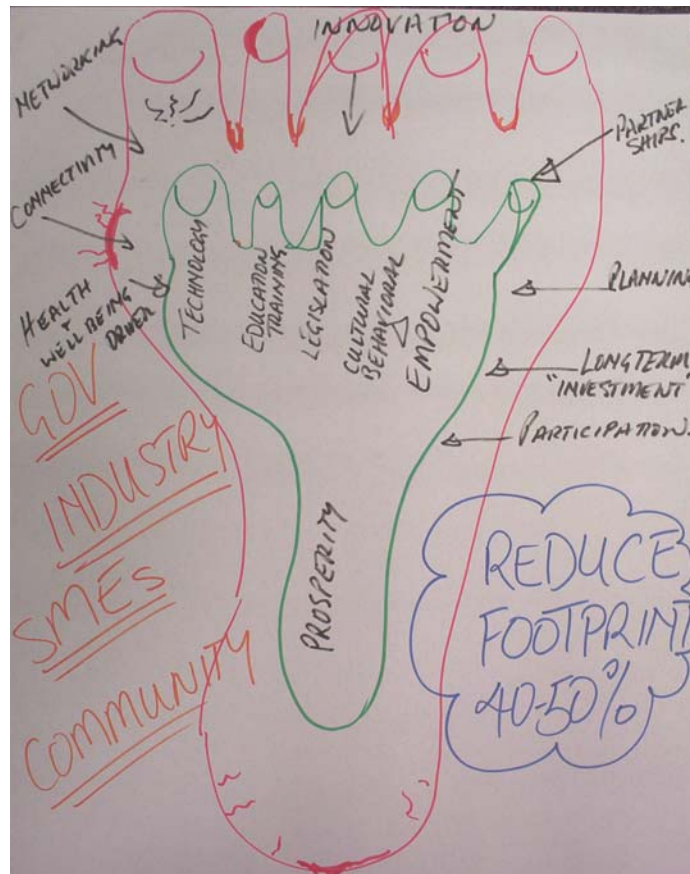 INNOVATION
NETWORKING
CONNECTIVITY
HEALTH
+
WELL BEING
DRIVER
PARTNER
SHIPS.
PLANNING
LONGTERM
"INVESTMENT"
PARTICIPATION.
TECHNOLOGY
EDUCATION
TRAINING
LEGISLATION
CULTURAL
BEHAVIORAL
EMPOWERMENT
PROSPERITY
GOV
INDUSTRY
SMEs
COMMUNITY
REDUCE
FOOTPRINT
40-50%